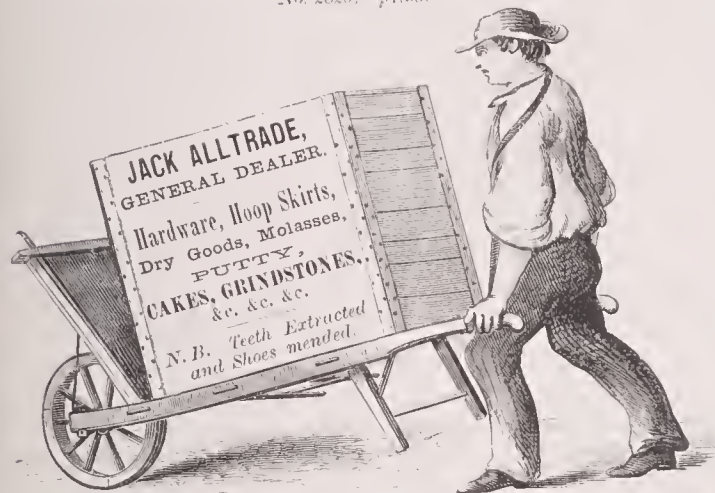 JACK ALLTRADE,
GENERAL DEALER.
Hardware, Hoop Skirts,
Dry Goods, Molasses,
PUTTY,
CAKES, GRINDSTONES,
&c. &c. &c.
N. B. Teeth Extracted
and Shoes mended.